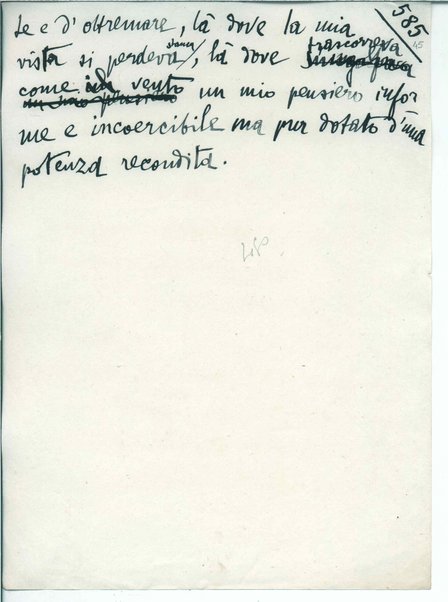 585
45
te e d'oltremare, là dove la mia
vista si perdeva, là dove trascorreva
come il vento un mio pensiero infor
me e incoercibile ma pur dotato d'una
potenza recondita.